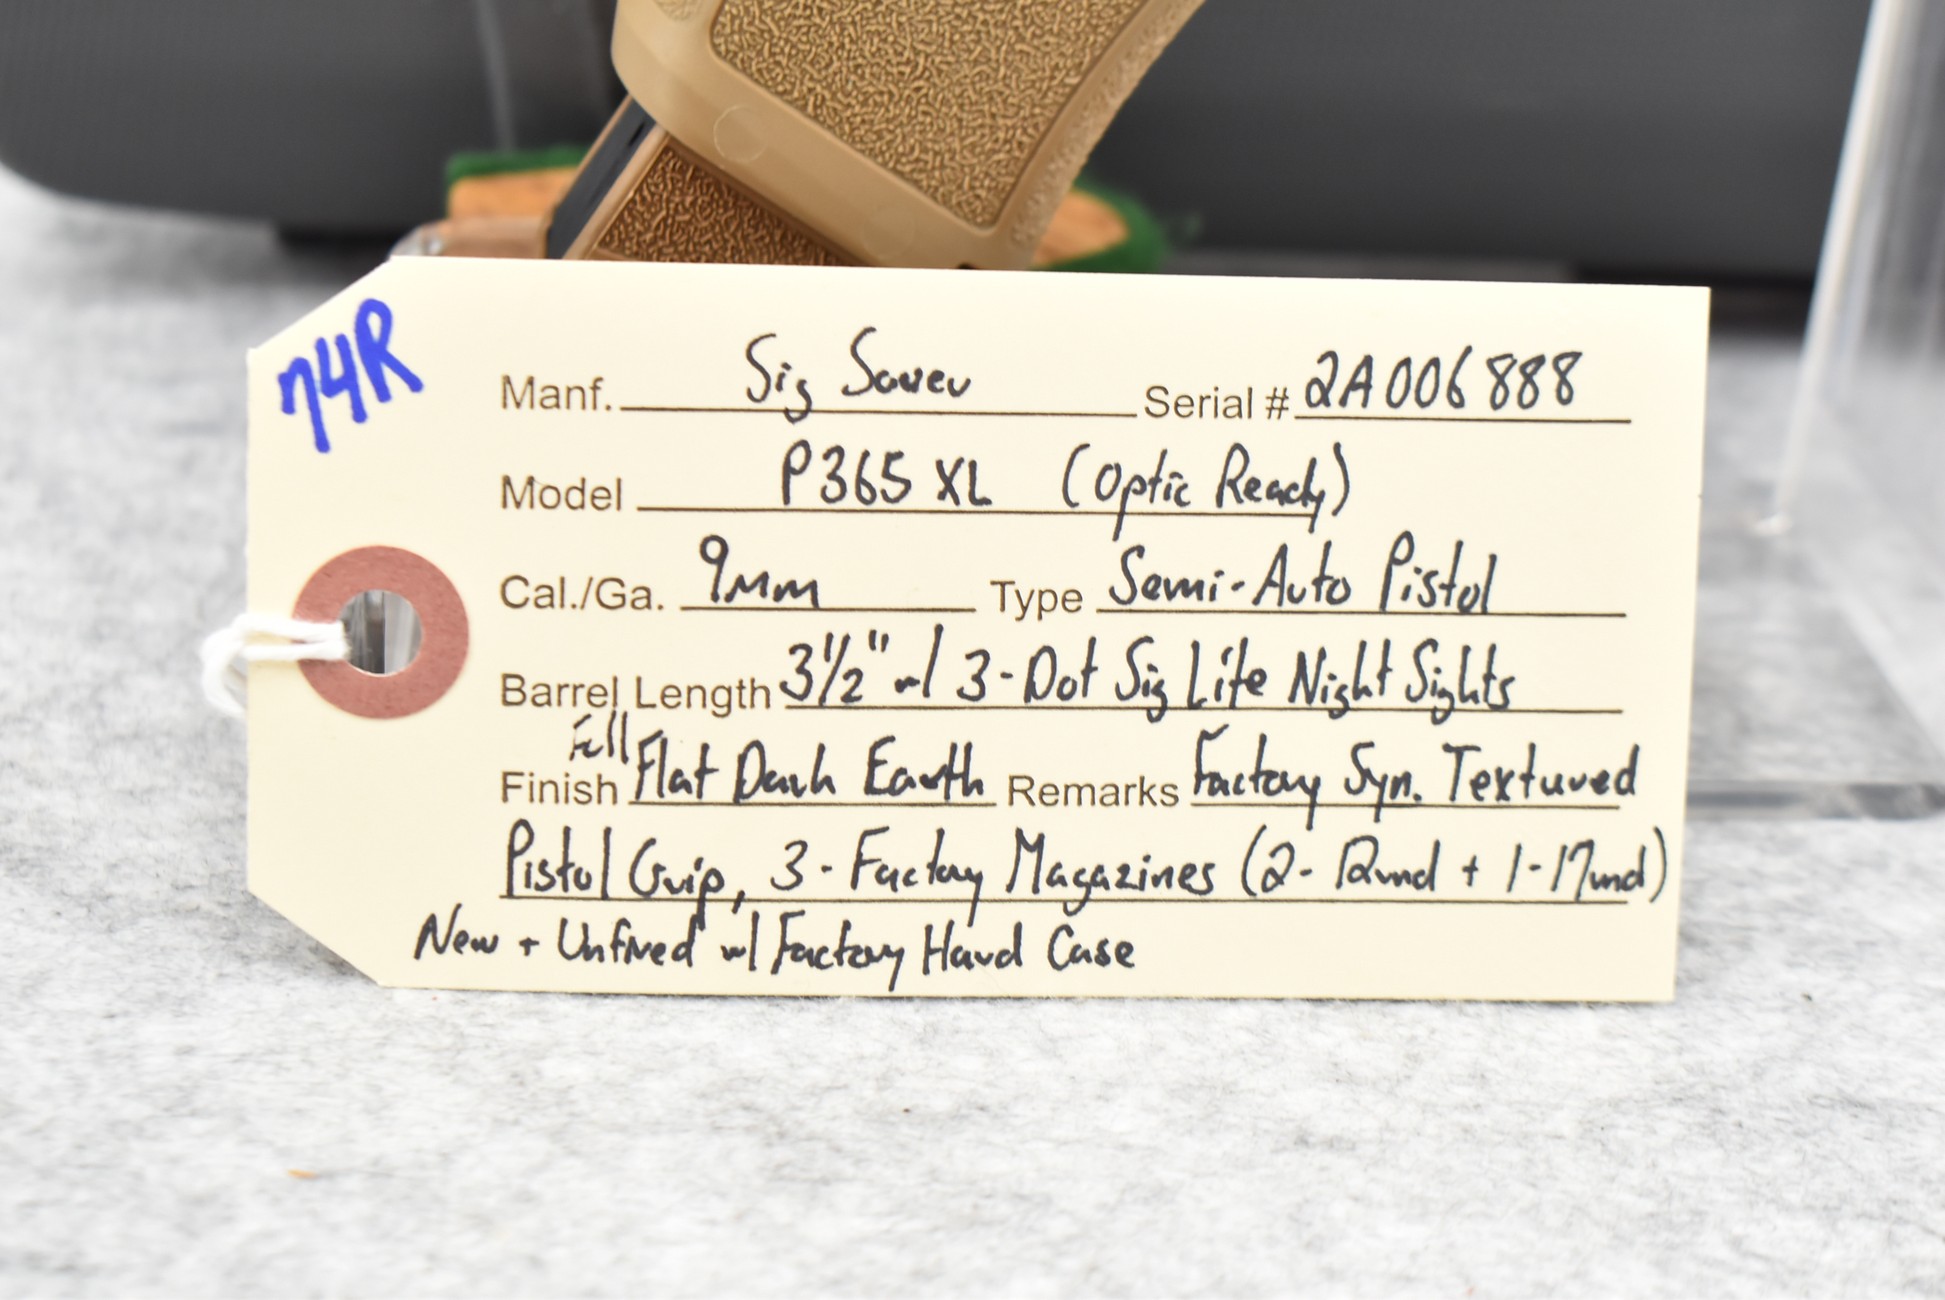 74R
Manf. Sig Sauer Serial # 2A006888
Model P365 XL (Optic Ready)
Cal./Ga. 9mm Type Semi-Auto Pistol
Barrel Length 3½" w/ 3-Dot Sig Lite Night Sights
Finish Full Flat Dark Earth Remarks Factory Syn. Textured
Pistol Grip, 3-Factory Magazines (2-12rnd + 1-17rnd)
New + Unfired w/ Factory Hard Case